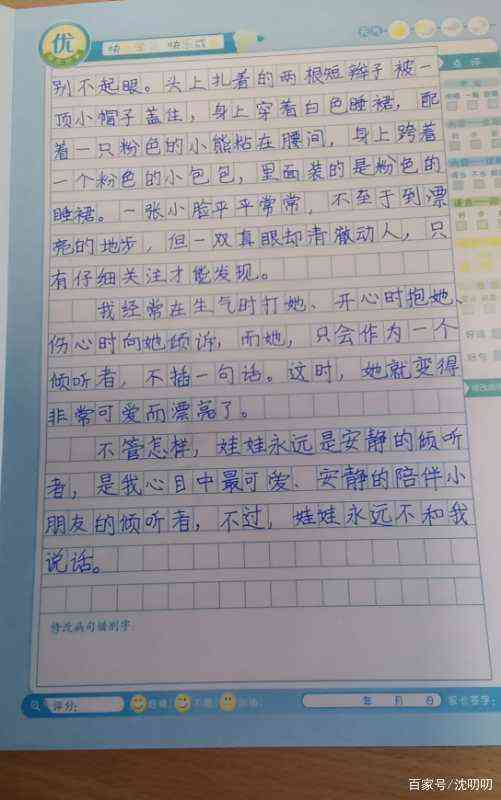 优
点评
别不起眼。头上扎着的两根短辫子被一
顶小帽子盖住，身上穿着白色睡裙，配
着一只粉色的小熊粘在腰间，身上跨着
一个粉色的小包包，里面装的是粉色的
睡裙。一张小脸平平常常，不至于到漂
亮的地步，但一双真眼却清澈动人，只
有仔细关注才能发现。
我经常在生气时打她、开心时抱她、
伤心时向她倾诉，而她，只会作为一个
倾听者，不插一句话。这时，她就变得
非常可爱而漂亮了。
不管怎样，娃娃永远是安静的倾听
者，是我心目中最可爱、安静的陪伴小
朋友的倾听者，不过，娃娃永远不和我
说话。
修改病句错别字：
评分：
年 月 日
家长签字：
百家号/沈叨叨